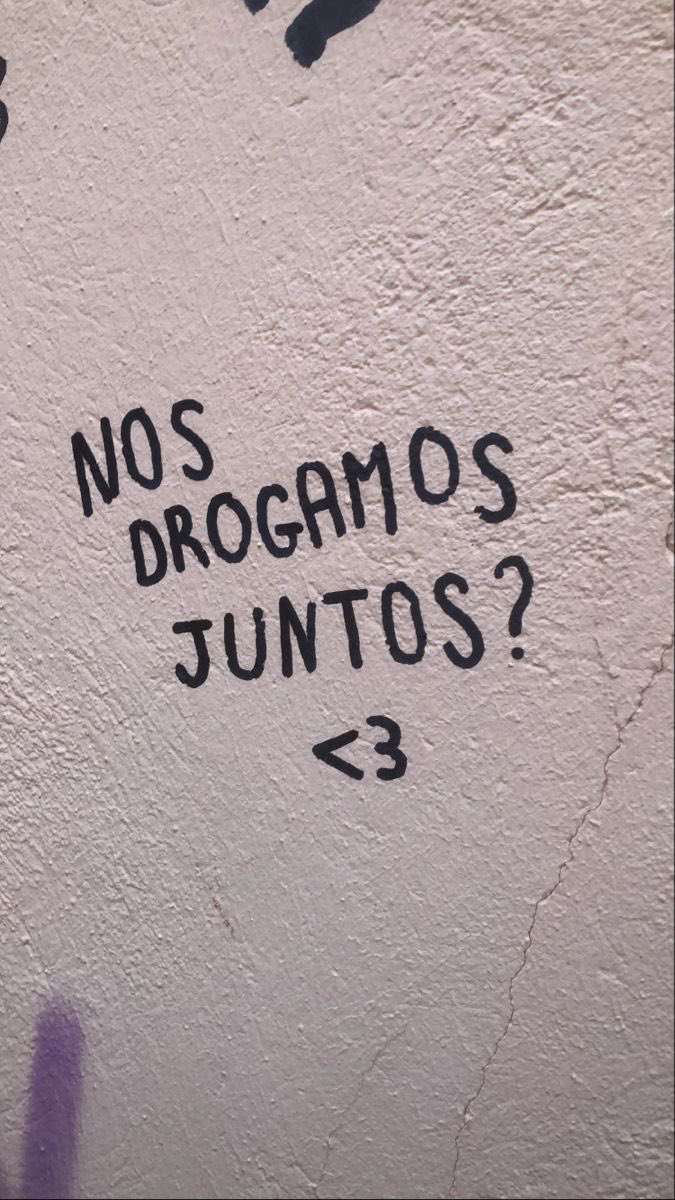 NOS
DROGAMOS
JUNTOS?
<3